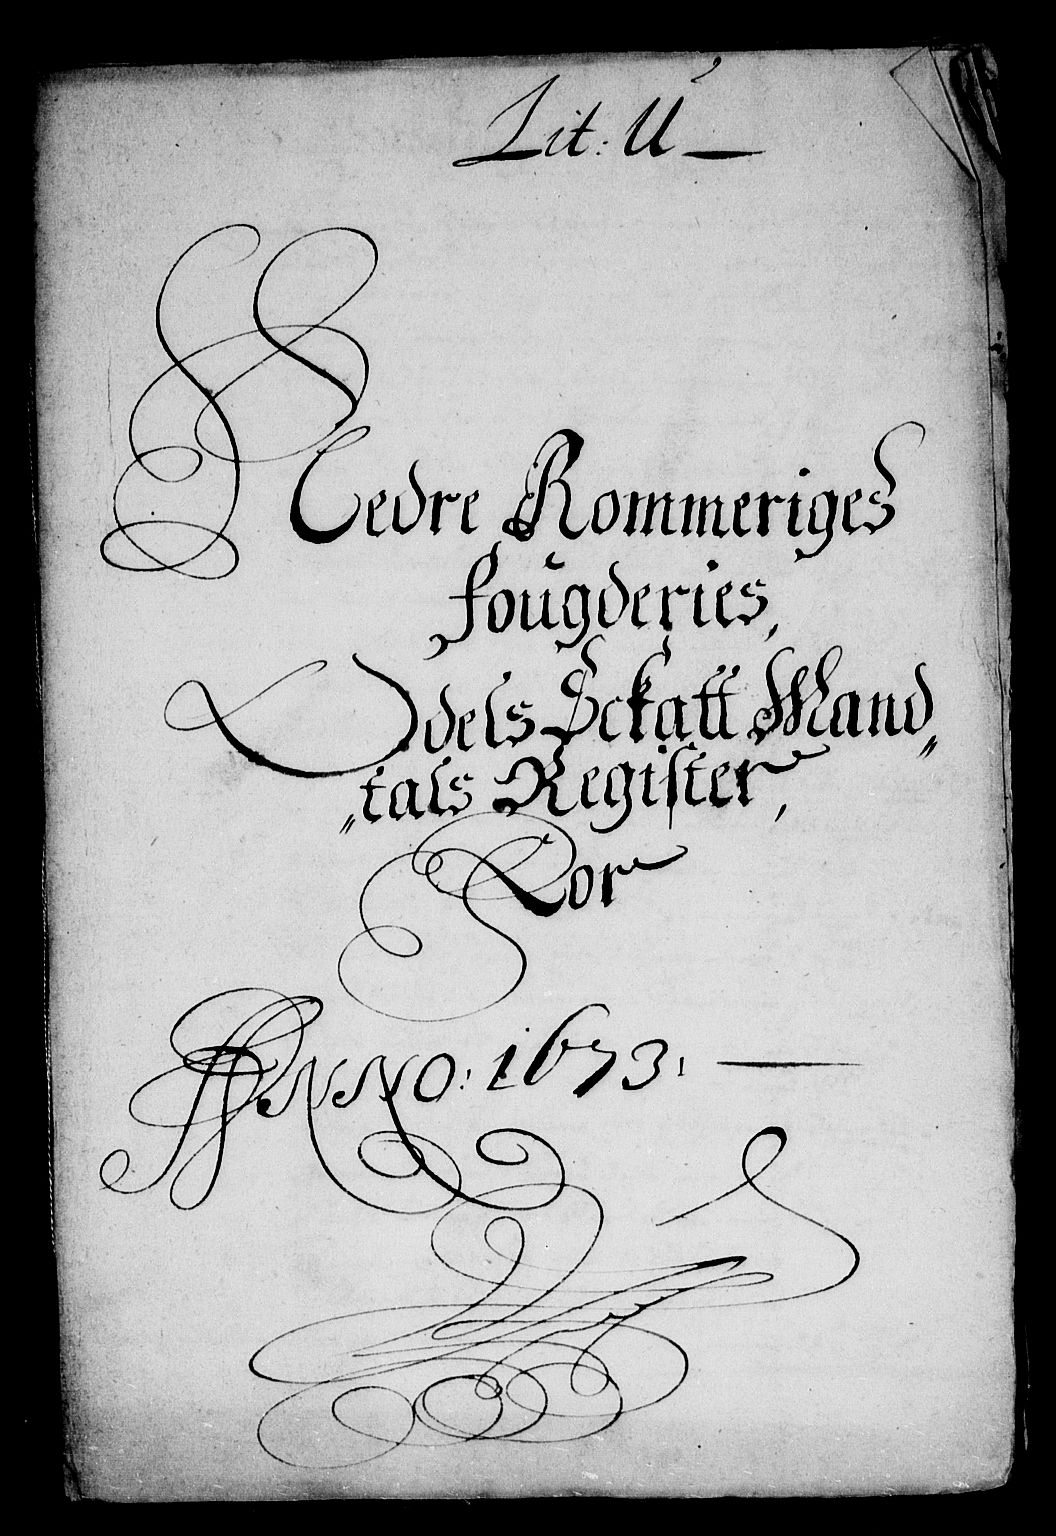 Lit: U
Nedre Rommeriges
fougderies,
Odels Sckatt Mand„
„tals Register,
For
ANNO: 1673: